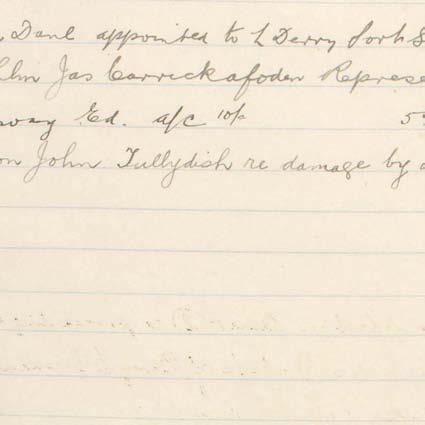 Danl appointed to L Derry Port S
Jas Carrickafoden Represe
Ed. a/c 10/-
on John Tullydish re damage by